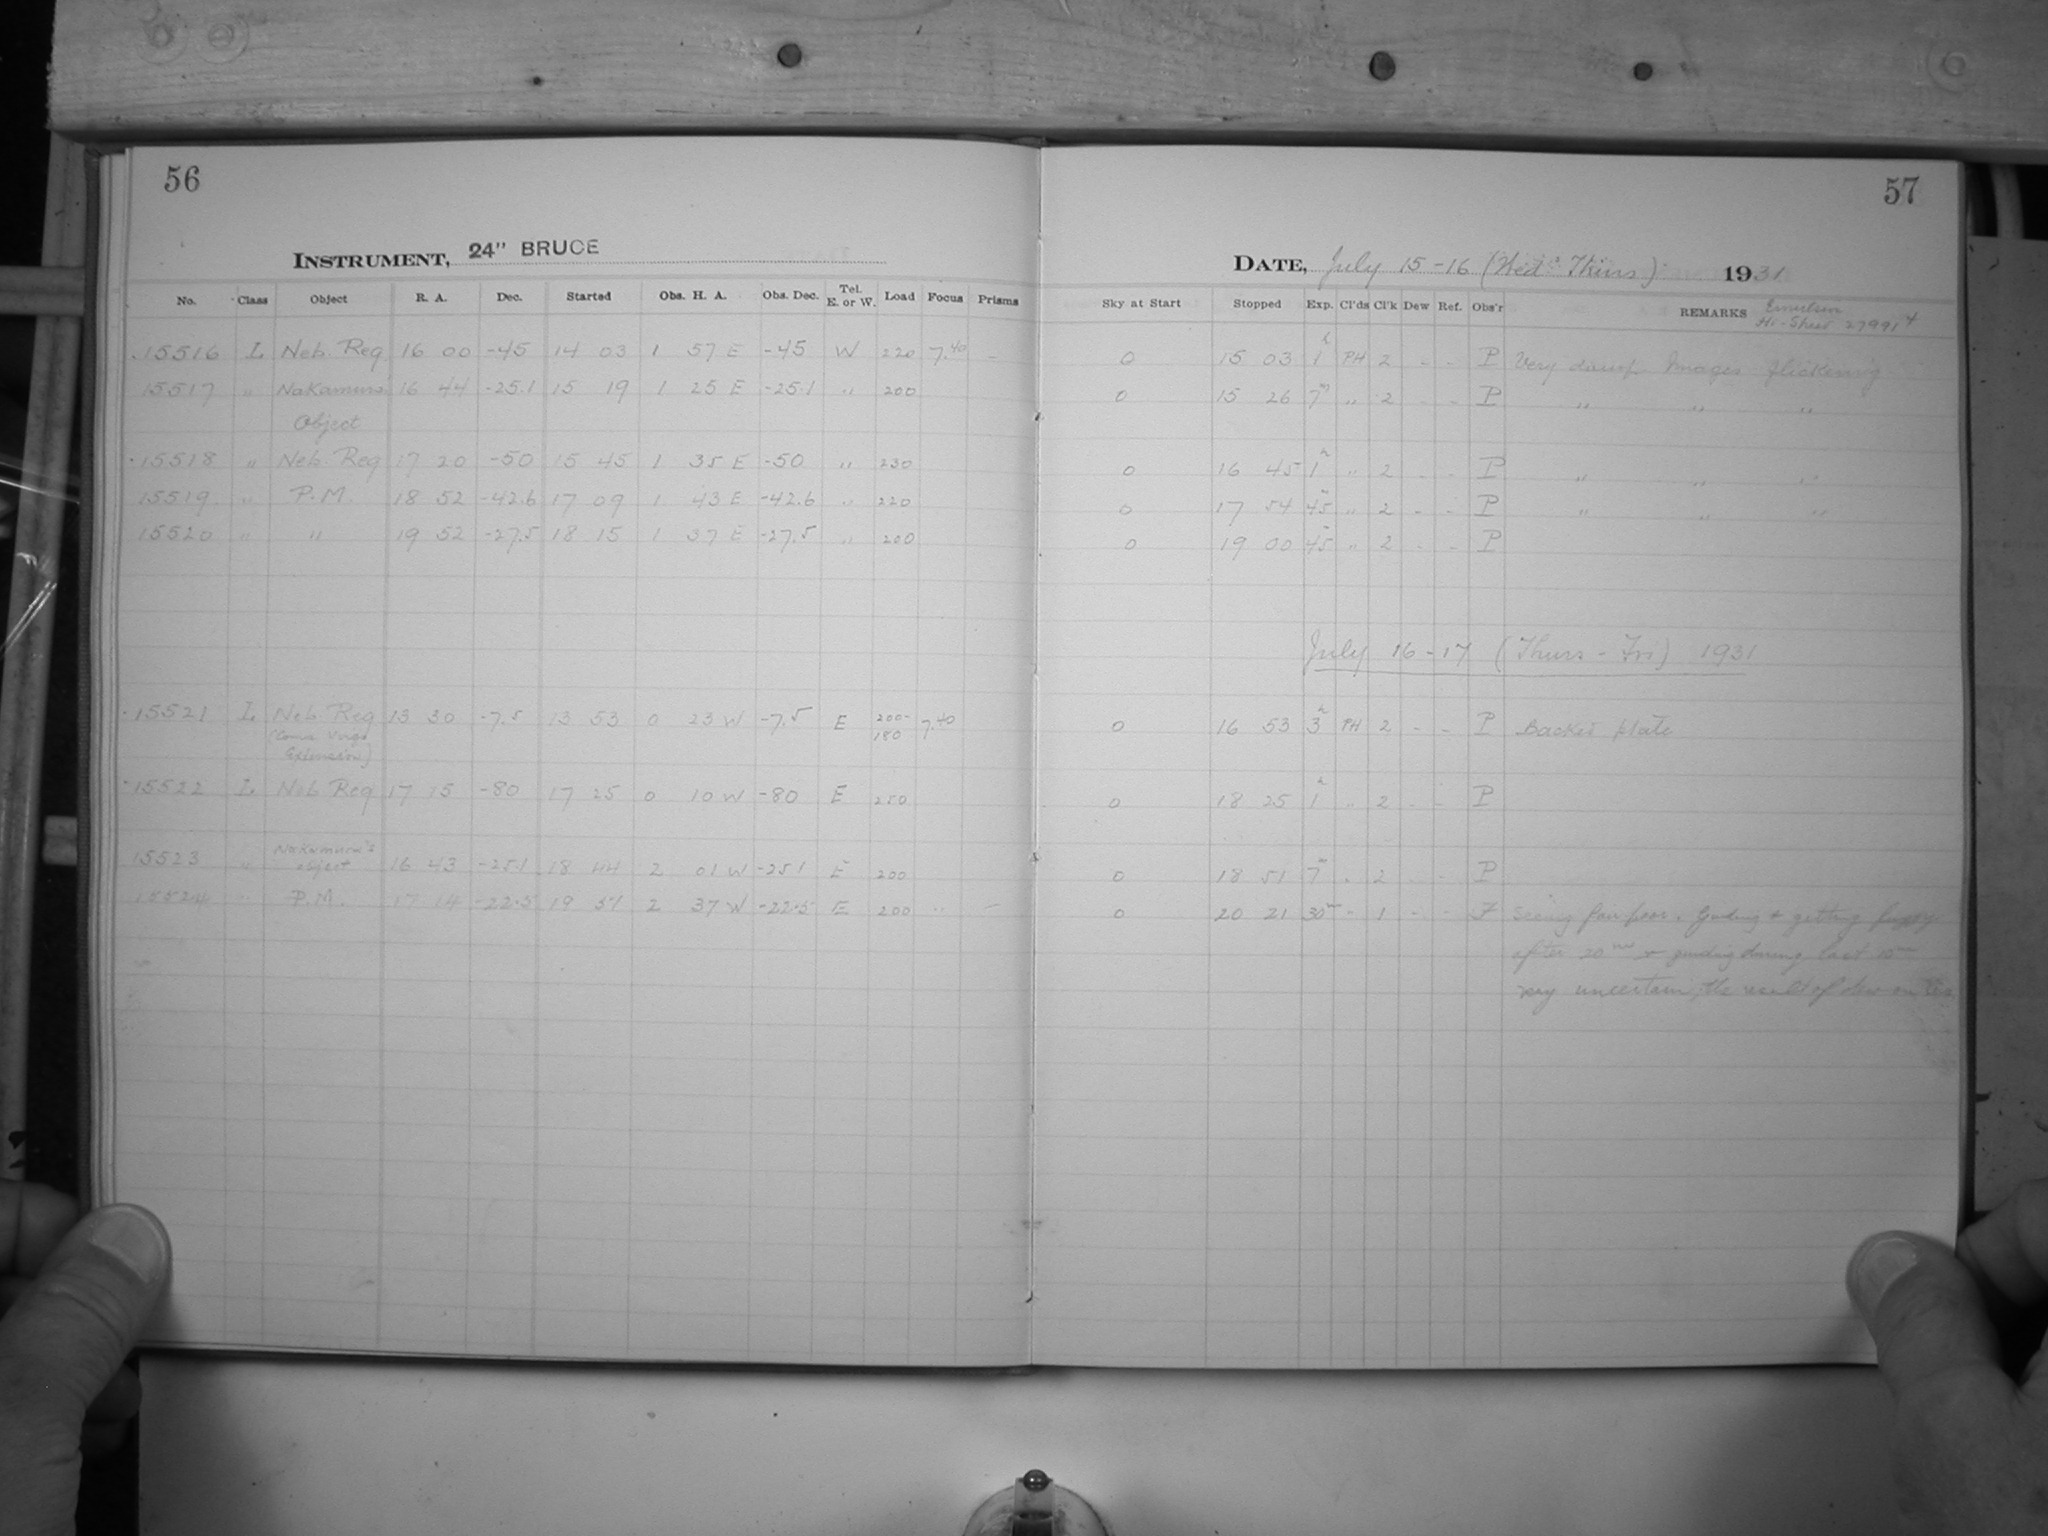 56
INSTRUMENT, 24" BRUCE
No. Class Object R. A. Dec. Started Obs. H. A. Obs. Dec. Tel. E. or W. Load Focus Prisms
15516 L Neb. Reg 16 00 -45 14 03 1 57 E -45 W 220 7.40 -
15517 " Nakamura's 16 44 -25.1 15 19 1 25 E -25.1 " 200
Object
15518 " Neb. Reg 17 20 -50 15 45 1 35 E -50 " 230
15519 " P.M. 18 52 -42.6 17 09 1 43 E -42.6 " 220
15520 " " 19 52 -27.5 18 15 1 37 E -27.5 " 200
15521 L Neb. Reg 13 30 -7.5 13 53 0 23 W -7.5 E 200-180 7.40
(Coma Virgo
Extension)
15522 L Neb Reg 17 15 -80 17 25 0 10 W -80 E 250
15523 " Nakamura's object 16 43 -25.1 18 44 2 01 W -25.1 E 200
15524 " P.M. 17 14 -22.5 19 51 2 37 W -22.5 E 200 " -
57
DATE, July 15-16 (Wed - Thurs) 1931
Sky at Start Stopped Exp. Cl'ds Cl'k Dew Ref. Obs'r REMARKS Emulsion
27991
0 15 03 1h PH 2 - - P Very damp. Images flickering
0 15 26 7m " 2 - - P " " "
0 16 45 1h " 2 - - P " " "
0 17 54 45m " 2 - - P " " "
0 19 00 45m " 2 - - P
July 16-17 (Thurs - Fri) 1931
0 16 53 3h PH 2 - - P Backed plate
0 18 25 1h " 2 - - P
0 18 51 7m " 2 - - P
0 20 21 30m - 1 - - F Seeing fair poor. getting
after 20m & guiding during last 10m
very uncertain, the result of dew on